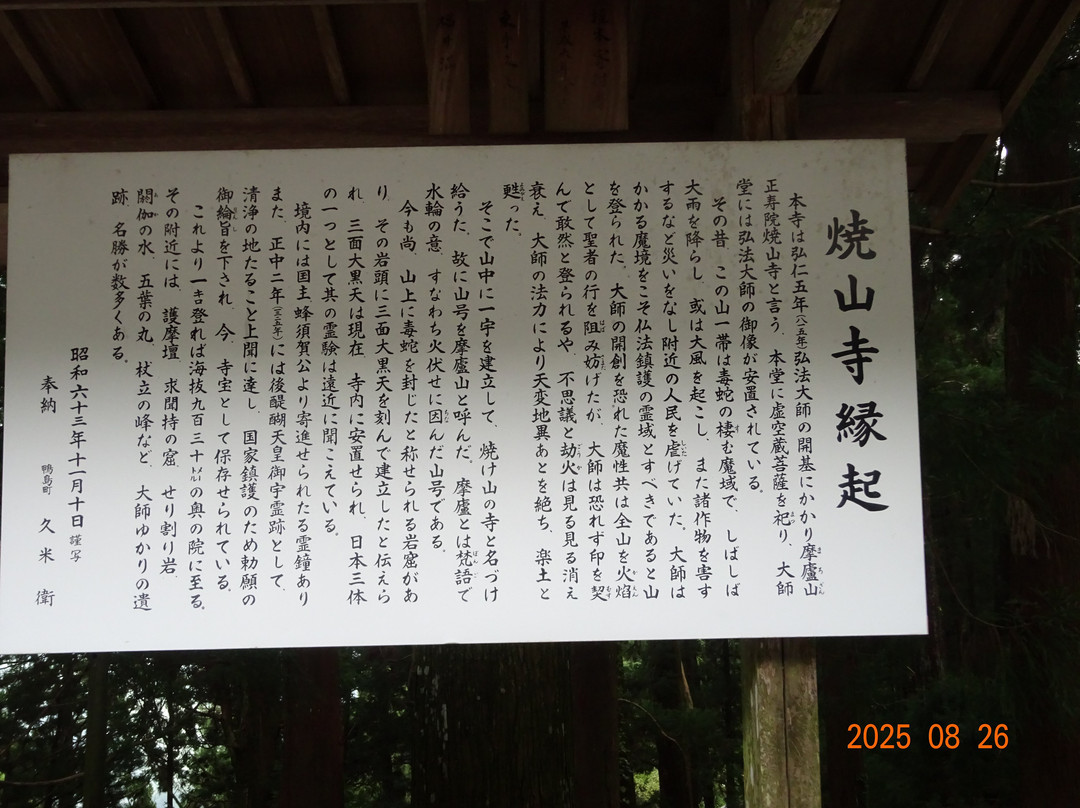 焼山寺縁起
本寺は弘仁五年(八一五年)弘法大師の開基にかかり摩廬山
正寿院焼山寺と言う。本堂に虚空蔵菩薩を祀り、大師
堂には弘法大師の御像が安置されている。
その昔、この山一帯は毒蛇の棲む魔域で、しばしば
大雨を降らし、或は大風を起こし、また諸作物を害す
するなど災いをなし附近の人民を虐げていた。大師は
かかる魔境をこそ仏法鎮護の霊域とすべきであると山
を登られた。大師の開創を恐れた魔性共は全山を火焰
として聖者の行を阻み妨げたが、大師は恐れず印を契
んで敢然と登られるや、不思議と劫火は見る見る消え
衰え、大師の法力により天変地異あとを絶ち、楽土と
甦った。
そこで山中に一宇を建立して、焼け山の寺と名づけ
給うた。故に山号を摩廬山と呼んだ。摩廬とは梵語で
水輪の意、すなわち火伏せに因んだ山号である。
今も尚、山上に毒蛇を封じたと称せられる岩窟があ
り、その岩頭に三面大黒天を刻んで建立したと伝えら
れ、三面大黒天は現在、寺内に安置せられ、日本三体
の一つとして其の霊験は遠近に聞こえている。
境内には国主、蜂須賀公より寄進せられたる霊鐘あり
また、正中二年(一三二五年)には後醍醐天皇御宇霊跡として、
清浄の地たること上聞に達し、国家鎮護のため勅願の
御綸旨を下され、今、寺宝として保存せられている。
これより一キロ登れば海抜九百三十メートルの奥の院に至る。
その附近には、護摩壇、求聞持の窟、せり割り岩、
閼伽の水、五葉の丸、杖立の峰など、大師ゆかりの遺
跡、名勝が数多くある。
昭和六十三年十一月十日 謹写
奉納 鴨島町 久米 衛
2025 08 26